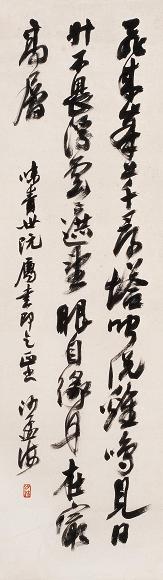 飛来峯上千尋塔聞説雞鳴見日
升不畏浮雲遮望眼自緣身在最
高層
味青世阮屬書即乞正 沙孟海